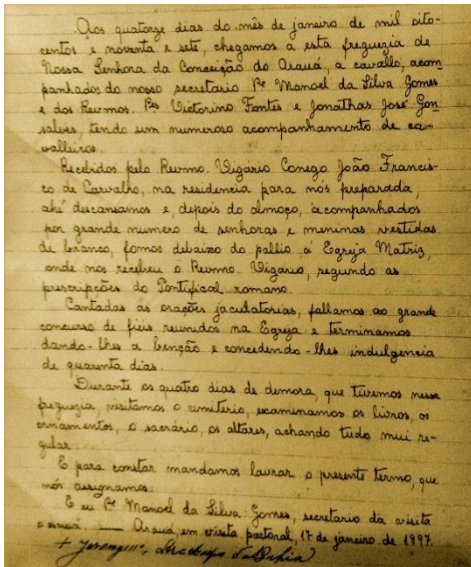 Aos quatorze dias do mês de janeiro de mil oito-
centos e noventa e sete, chegamos a esta freguezia de
Nossa Senhora da Conceição do Arauá, a cavallo, acom-
panhados do nosso secretario Pe Manoel da Silva Gomes
e dos Revmos. Pes Victorino Fontes e Jonathas José Gon-
salves, tendo um numeroso acompanhamento de ca-
valleiros.
Recebidos pelo Revmo. Vigário Conego João Francis-
co de Carvalho, na residencia para nós preparada,
ahi descansamos e, depois do almoço, acompanhados
por grande numero de senhoras e meninas vestidas
de branco, fomos debaixo do pallio á Egreja Matriz,
onde nos recebeu o Revmo. Vigário, segundo as
prescripções do Pontifical romano.
Cantadas as orações jaculatorias, fallamos ao grande
concurso de fieis reunidos na Egreja e terminamos
dando-lhes a benção e concedendo-lhes indulgencia
de quarenta dias.
Durante os quatro dias de demora, que tivemos nessa
freguezia, visitamos o cemiterio, examinamos os livros, os
ornamentos, o sacrário, os altares, achando tudo mui re-
gular.
E para constar mandamos lavrar o presente termo, que
nós assignamos.
E eu Pe Manoel da Silva Gomes, secretario da visita
o escrevi. — Arauá, em visita pastoral, 17 de janeiro de 1997.
+ Jeronymo, Arcebispo da Bahia